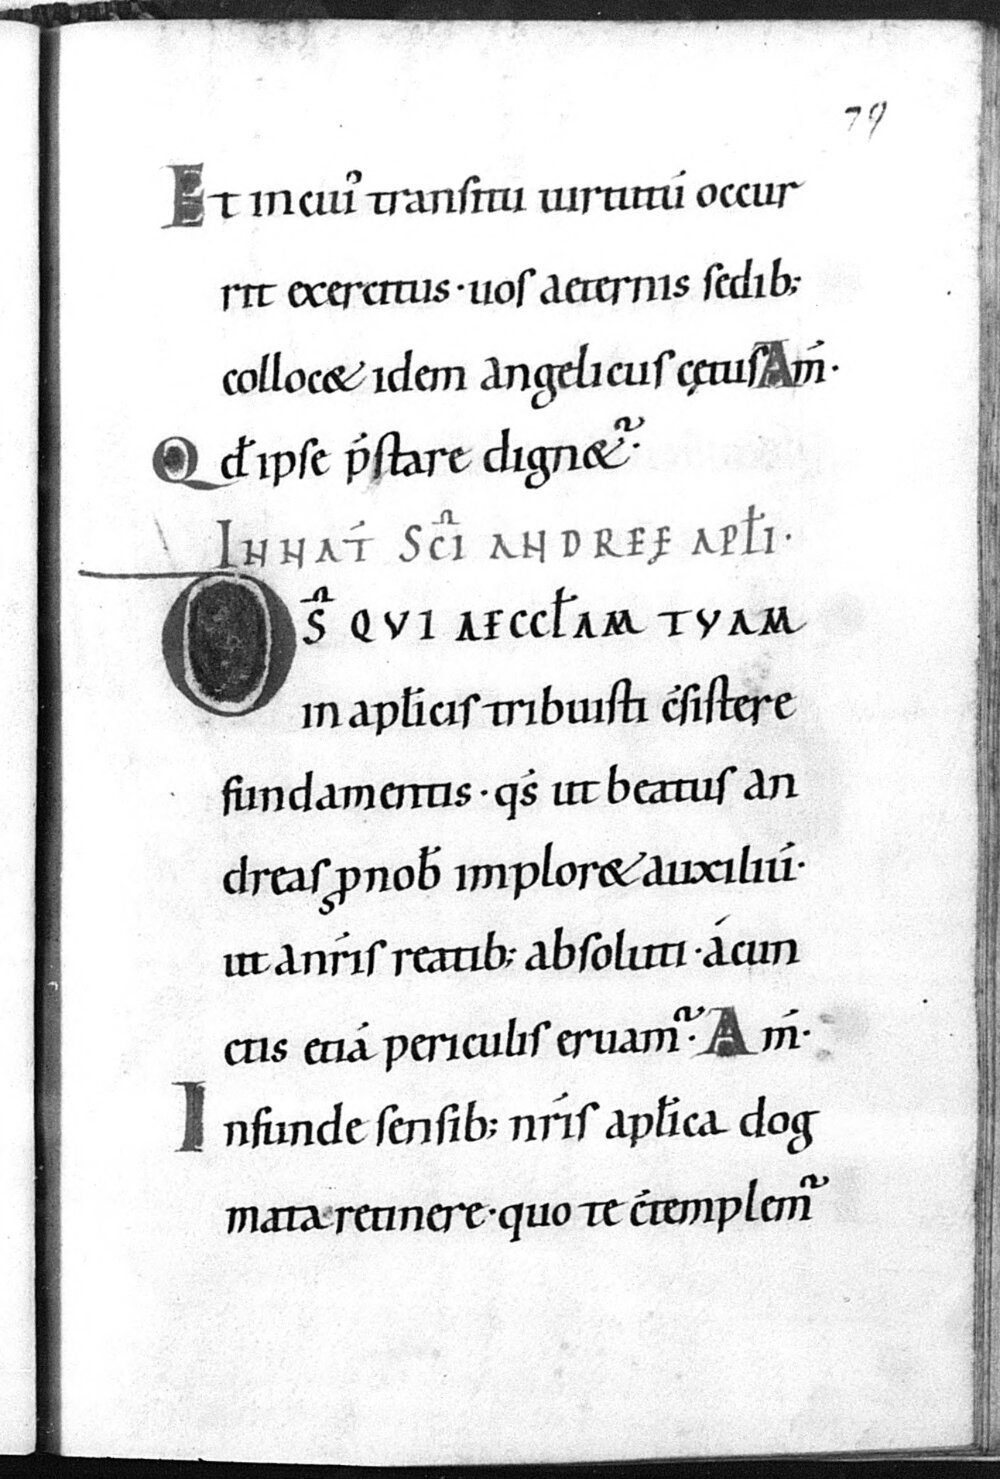 79
Et in cui᾽ transitu uirtutũ occur
rit exercitus · uos aeternis sedib;
colloc& idem angelicus cętus Am̅ ·
Qd̅ ipse p̅stare dign&᷑ ·
IN NAT̅ SC̅I ANDREĘ APL̅I ·
OS̅ QVI AECCL̅AM TVAM
in apl̅icis tribuisti c̅sistere
fundamentis · qs̅ ut beatus an
dreas ꝓ nob̅ implor& auxiliũ ·
ut a nr̅is reatib; absoluti · á cun
ctis etiã periculis eruam᷑ · Am̅ ·
Infunde sensib; nr̅is apl̅ica dog
mata retinere · quo te c̅templem᷑